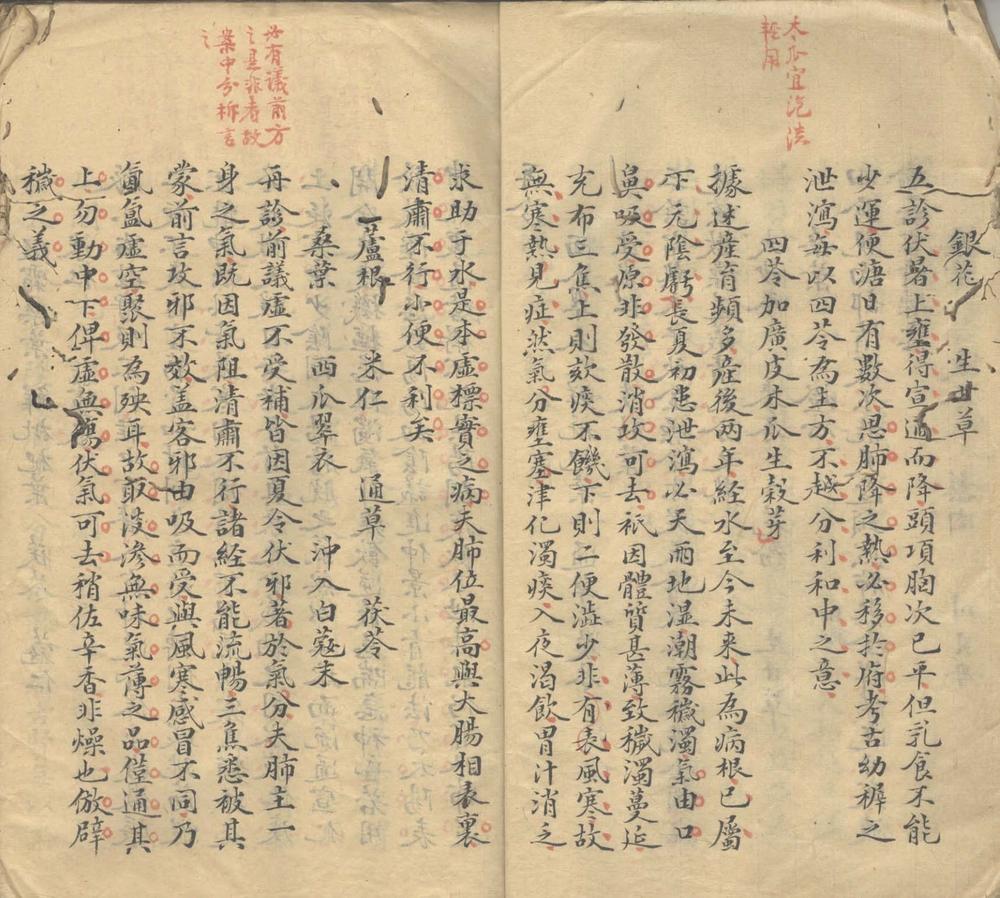 木瓜宜泡淡
輕用
銀花 生甘草
五診伏暑上壅得宣通而降頭項胸次已平但乳食不能
少運便溏日有數次思肺降之熱必移於府考古幼稺之
泄瀉每以四苓為主方不越分利和中之意
四苓加廣皮木瓜生穀芽
據述產育頻多產後兩年經水至今未來此為病根已屬
下元陰虧長夏初患泄瀉必天雨地湿潮霧穢濁氣由口
鼻吸受原非發散消攻可去祇因體質甚薄致穢濁蔓延
充布三焦上則欬痰不饑下則二便澁少非有表風寒故
無寒熱見症然氣分壅塞津化濁痰入夜渴飲胃汁消乏
必有議前方
之是非者故
案中分柝言
之
求助于水是本虛標實之病夫肺位最高與大腸相表裏
清肅不行小便不利矣
蘆根 米仁 通草 茯苓
桑葉 西瓜翠衣 沖入白蔻末
再診前議虛不受補皆因夏令伏邪著於氣分夫肺主一
身之氣既因氣阻清肅不行諸経不能流暢三焦悉被其
蒙前言攻邪不效盖客邪由吸而受與風寒感冒不同乃
氤氳虛空聚則為殃耳故取淡滲無味氣薄之品僅通其
上勿動中下俾虛無傷伏氣可去稍佐辛香非燥也倣辟
穢之義